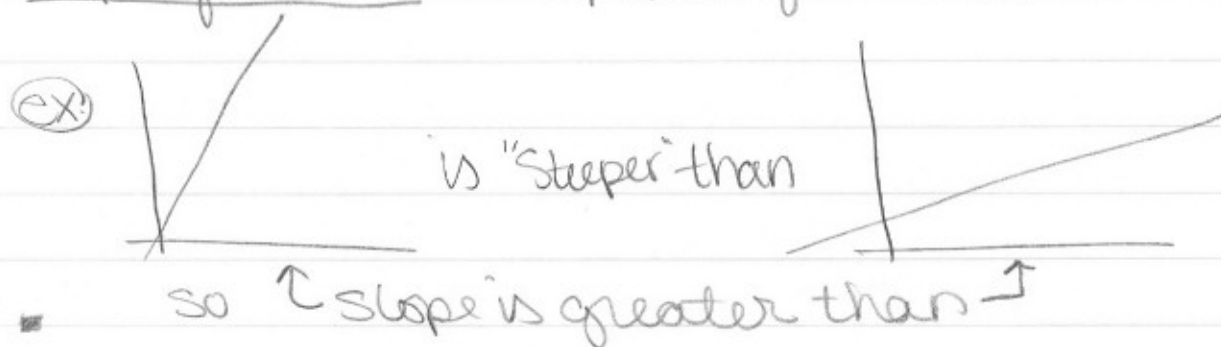 ex:
is "Steeper" than
so ↑ slope is greater than ↑